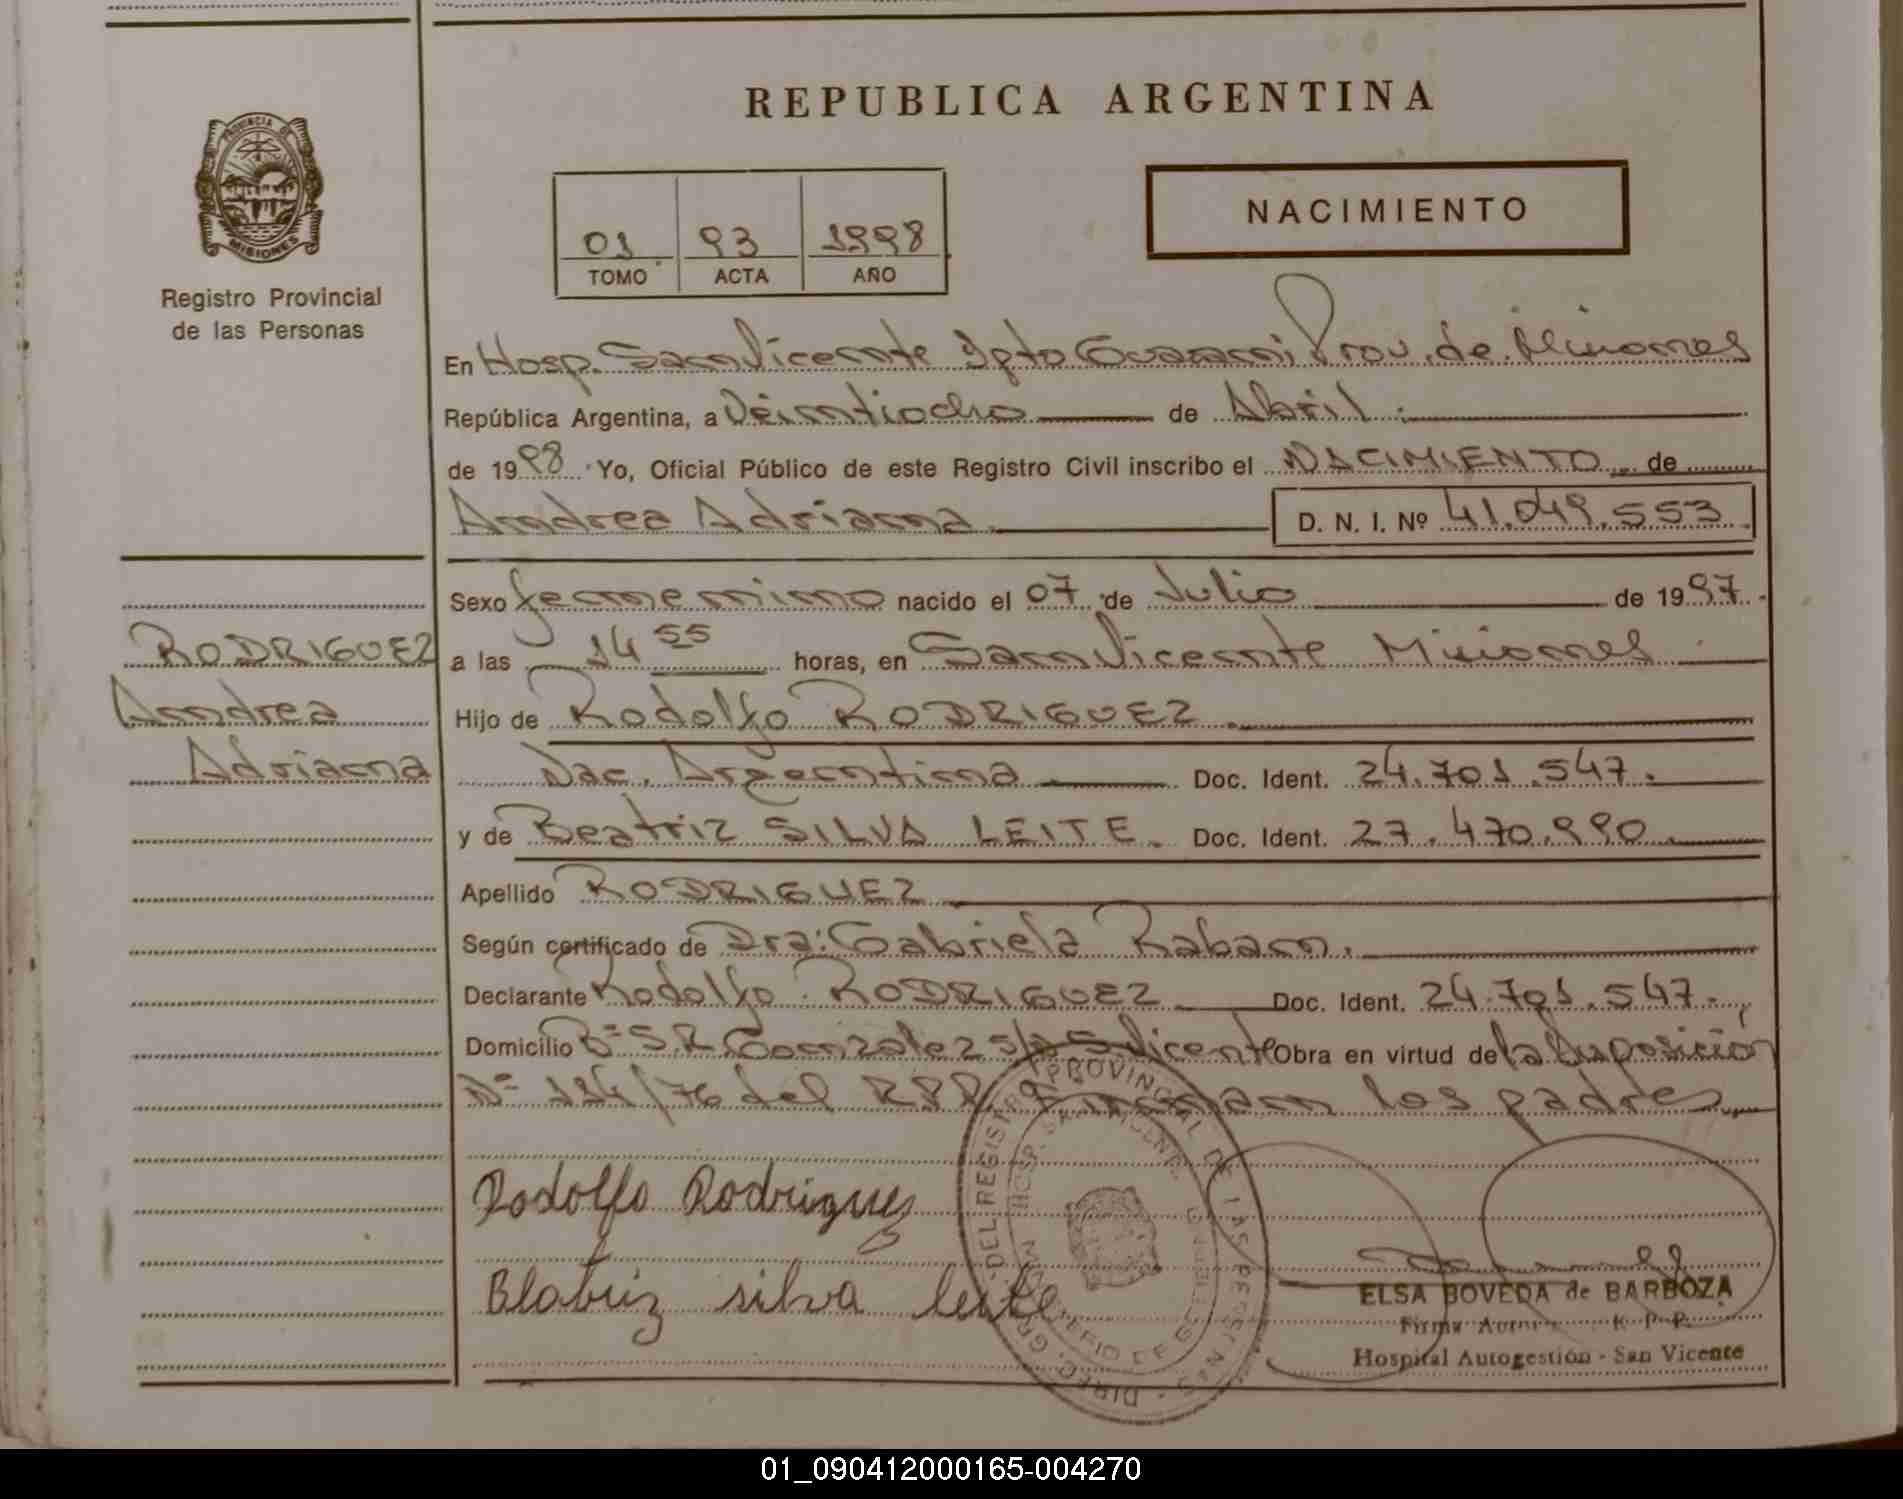 REPUBLICA ARGENTINA
PROVINCIA DE MISIONES
Registro Provincial
de las Personas
NACIMIENTO
01 93 1998
TOMO ACTA AÑO
En Hosp. San Vicente Dpto Guarani Prov. de Misiones
República Argentina, a Veintiocho de Abril
de 1998 Yo, Oficial Público de este Registro Civil inscribo el NACIMIENTO de
Andrea Adriana D. N. I. Nº 41.049.553
Sexo femenino nacido el 07 de Julio de 1997
a las 14 55 horas, en San Vicente Misiones
Hijo de Rodolfo RODRIGUEZ
Nac. Argentina Doc. Ident. 24.701.547.
y de Beatriz SILVA LEITE. Doc. Ident. 27.470.990
Apellido RODRIGUEZ
Según certificado de Dra: Gabriela Raban.
Declarante Rodolfo RODRIGUEZ Doc. Ident. 24.701.547.
Domicilio Bº S.R. Gonzalez s/n S. Vicente Obra en virtud de la Disposición
Nº 114/76 del RPP Firman los padres
RODRIGUEZ
Andrea
Adriana
Rodolfo Rodriguez
Beatriz silva leite
DIREC. GRAL. DEL REGISTRO PROVINCIAL DE LAS PERSONAS
HOSP. SAN VICENTE
MINISTERIO DE GOBIERNO
ELSA BOVEDA de BARBOZA
Firma R. P. P.
Hospital Autogestión - San Vicente
01_090412000165-004270